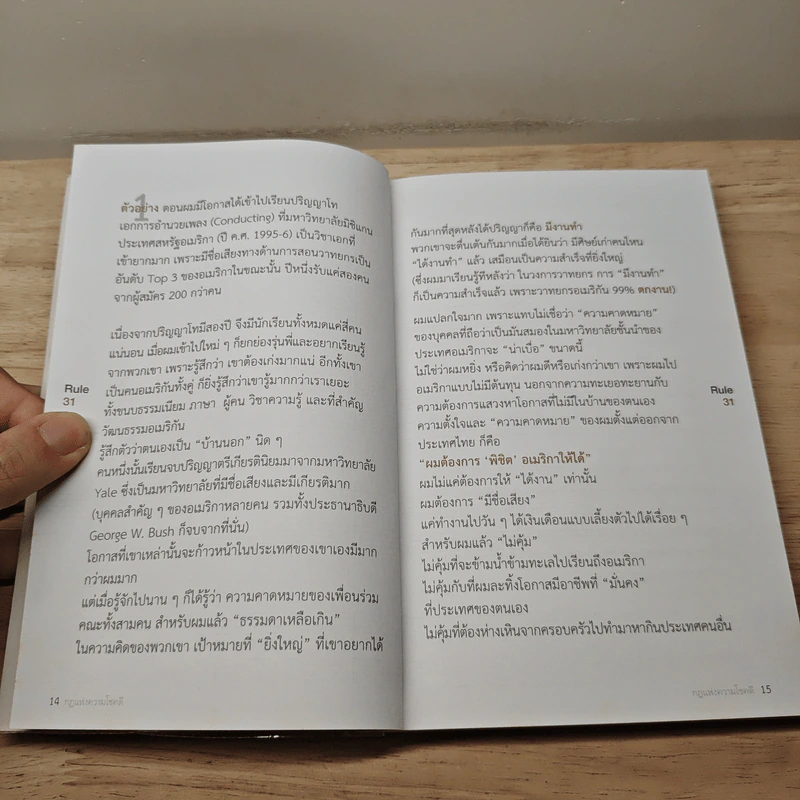 1
ตัวอย่าง ตอนผมมีโอกาสได้เข้าไปเรียนปริญญาโท
เอกการอำนวยเพลง (Conducting) ที่มหาวิทยาลัยมิชิแกน
ประเทศสหรัฐอเมริกา (ปี ค.ศ. 1995-6) เป็นวิชาเอกที่
เข้ายากมาก เพราะมีชื่อเสียงทางด้านการสอนวาทยกรเป็น
อันดับ Top 3 ของอเมริกาในขณะนั้น ปีหนึ่งรับแค่สองคน
จากผู้สมัคร 200 กว่าคน
เนื่องจากปริญญาโทมีสองปี จึงมีนักเรียนทั้งหมดแค่สี่คน
แน่นอน เมื่อผมเข้าไปใหม่ ๆ ก็ยกย่องรุ่นพี่และอยากเรียนรู้
จากพวกเขา เพราะรู้สึกว่า เขาต้องเก่งมากแน่ อีกทั้งเขา
เป็นคนอเมริกันทั้งคู่ ก็ยิ่งรู้สึกว่าเขารู้มากกว่าเราเยอะ
ทั้งขนบธรรมเนียม ภาษา ผู้คน วิชาความรู้ และที่สำคัญ
วัฒนธรรมอเมริกัน
รู้สึกตัวว่าตนเองเป็น “บ้านนอก” นิด ๆ
คนหนึ่งนั้นเรียนจบปริญญาตรีเกียรตินิยมมาจากมหาวิทยาลัย
Yale ซึ่งเป็นมหาวิทยาลัยที่มีชื่อเสียงและมีเกียรติมาก
(บุคคลสำคัญ ๆ ของอเมริกาหลายคน รวมทั้งประธานาธิบดี
George W. Bush ก็จบจากที่นั่น)
โอกาสที่เขาเหล่านั้นจะก้าวหน้าในประเทศของเขาเองมีมาก
กว่าผมมาก
แต่เมื่อรู้จักไปนาน ๆ ก็ได้รู้ว่า ความคาดหมายของเพื่อนร่วม
คณะทั้งสามคน สำหรับผมแล้ว “ธรรมดาเหลือเกิน”
ในความคิดของพวกเขา เป้าหมายที่ “ยิ่งใหญ่” ที่เขาอยากได้
Rule
31
14 กฎแห่งความโชคดี
กันมากที่สุดหลังได้ปริญญาก็คือ มีงานทำ
พวกเขาจะตื่นเต้นกันมากเมื่อได้ยินว่า มีศิษย์เก่าคนไหน
“ได้งานทำ” แล้ว เสมือนเป็นความสำเร็จที่ยิ่งใหญ่
(ซึ่งผมมาเรียนรู้ทีหลังว่า ในวงการวาทยกร การ “มีงานทำ”
ก็เป็นความสำเร็จแล้ว เพราะวาทยกรอเมริกัน 99% ตกงาน!)
ผมแปลกใจมาก เพราะแทบไม่เชื่อว่า “ความคาดหมาย”
ของบุคคลที่ถือว่าเป็นมันสมองในมหาวิทยาลัยชั้นนำของ
ประเทศอเมริกาจะ “น่าเบื่อ” ขนาดนี้
ไม่ใช่ว่าผมหยิ่ง หรือคิดว่าผมดีหรือเก่งกว่าเขา เพราะผมไป
อเมริกาแบบไม่มีต้นทุน นอกจากความทะเยอทะยานกับ
ความต้องการแสวงหาโอกาสที่ไม่มีในบ้านของตนเอง
ความตั้งใจและ “ความคาดหมาย” ของผมตั้งแต่ออกจาก
ประเทศไทย ก็คือ
“ผมต้องการ ‘พิชิต’ อเมริกาให้ได้”
ผมไม่แค่ต้องการให้ “ได้งาน” เท่านั้น
ผมต้องการ “มีชื่อเสียง”
แค่ทำงานไปวัน ๆ ได้เงินเดือนแบบเลี้ยงตัวไปได้เรื่อย ๆ
สำหรับผมแล้ว “ไม่คุ้ม”
ไม่คุ้มที่จะข้ามน้ำข้ามทะเลไปเรียนถึงอเมริกา
ไม่คุ้มกับที่ผมละทิ้งโอกาสมีอาชีพที่ “มั่นคง”
ที่ประเทศของตนเอง
ไม่คุ้มที่ต้องห่างเหินจากครอบครัวไปทำมาหากินประเทศคนอื่น
Rule
31
กฎแห่งความโชคดี 15